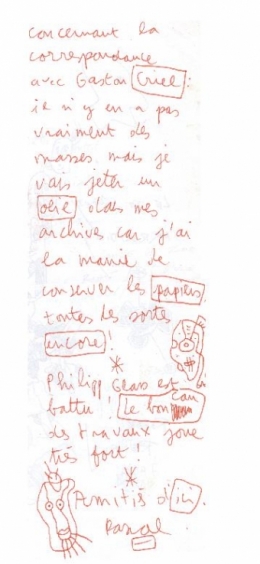 concernant la
correspondance
avec Gaston Criel :
il n'y en a pas
vraiment des
masses mais je
vais jeter un
œil dans mes
archives car j'ai
la manie de
conserver les papiers
toutes les sortes
encore !
*
Philipp Glass est
battu ! Le bon
des travaux joue
très fort !
*
Amitiés d'ici
Pascal